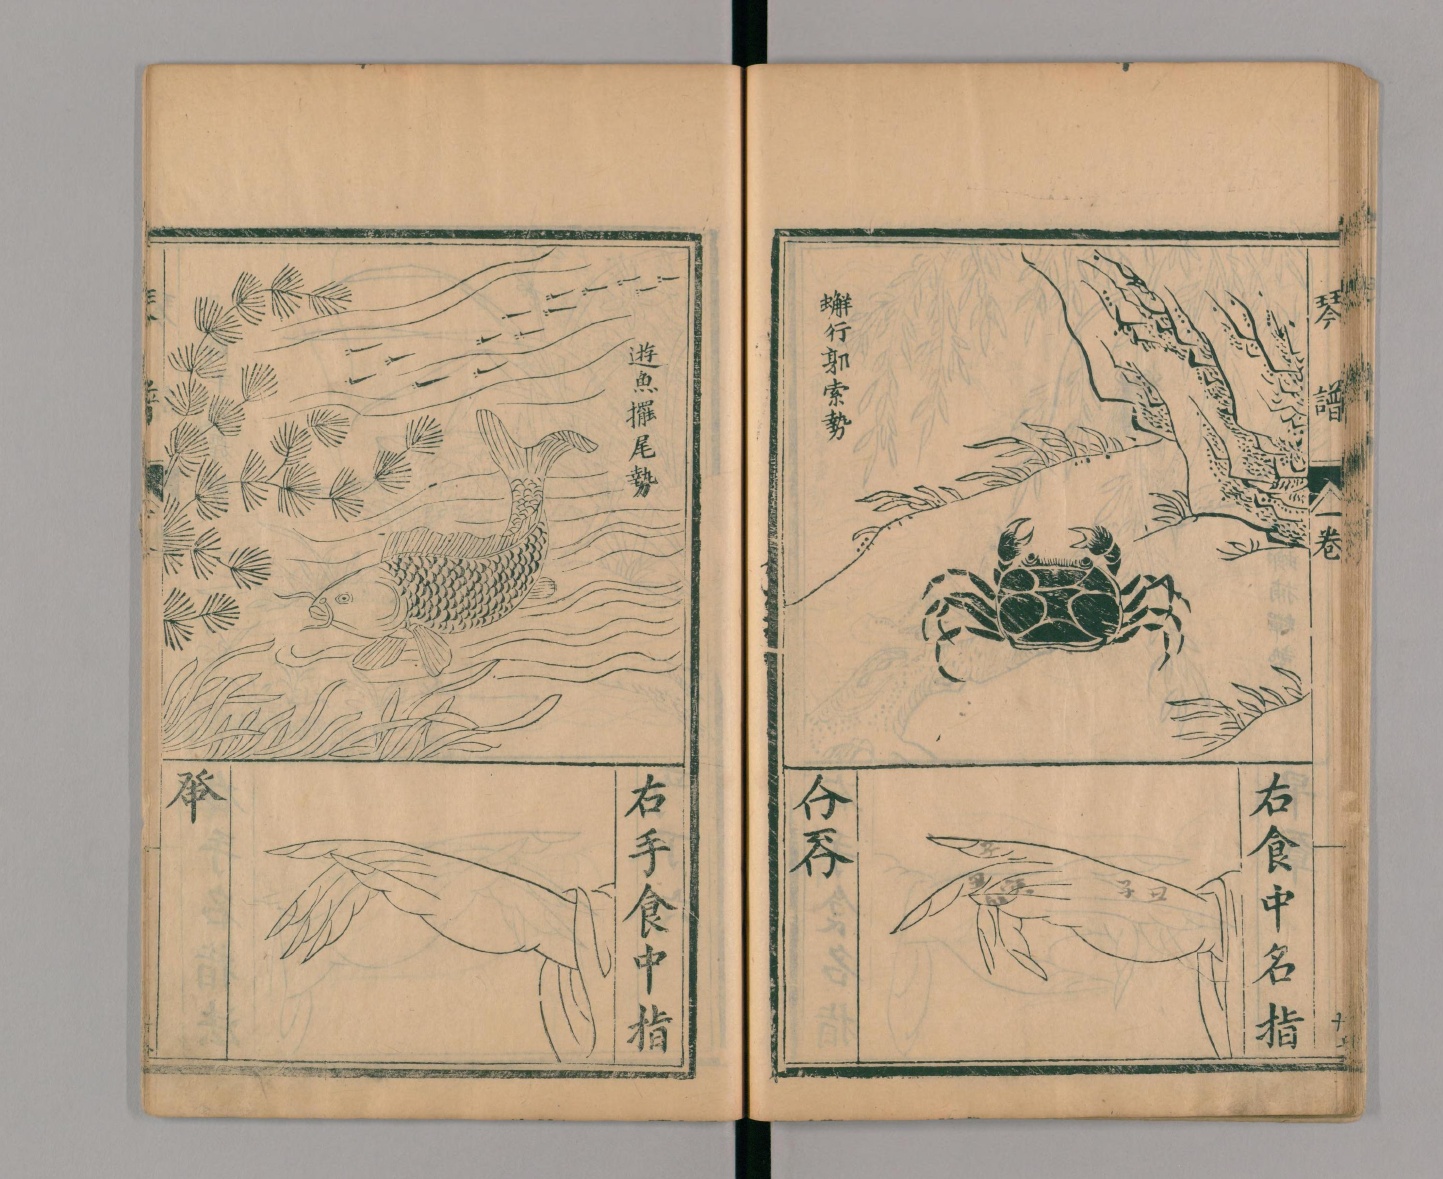 琴譜
卷一
蠏行郭索勢
右食中名指
遊魚擺尾勢
右手食中指